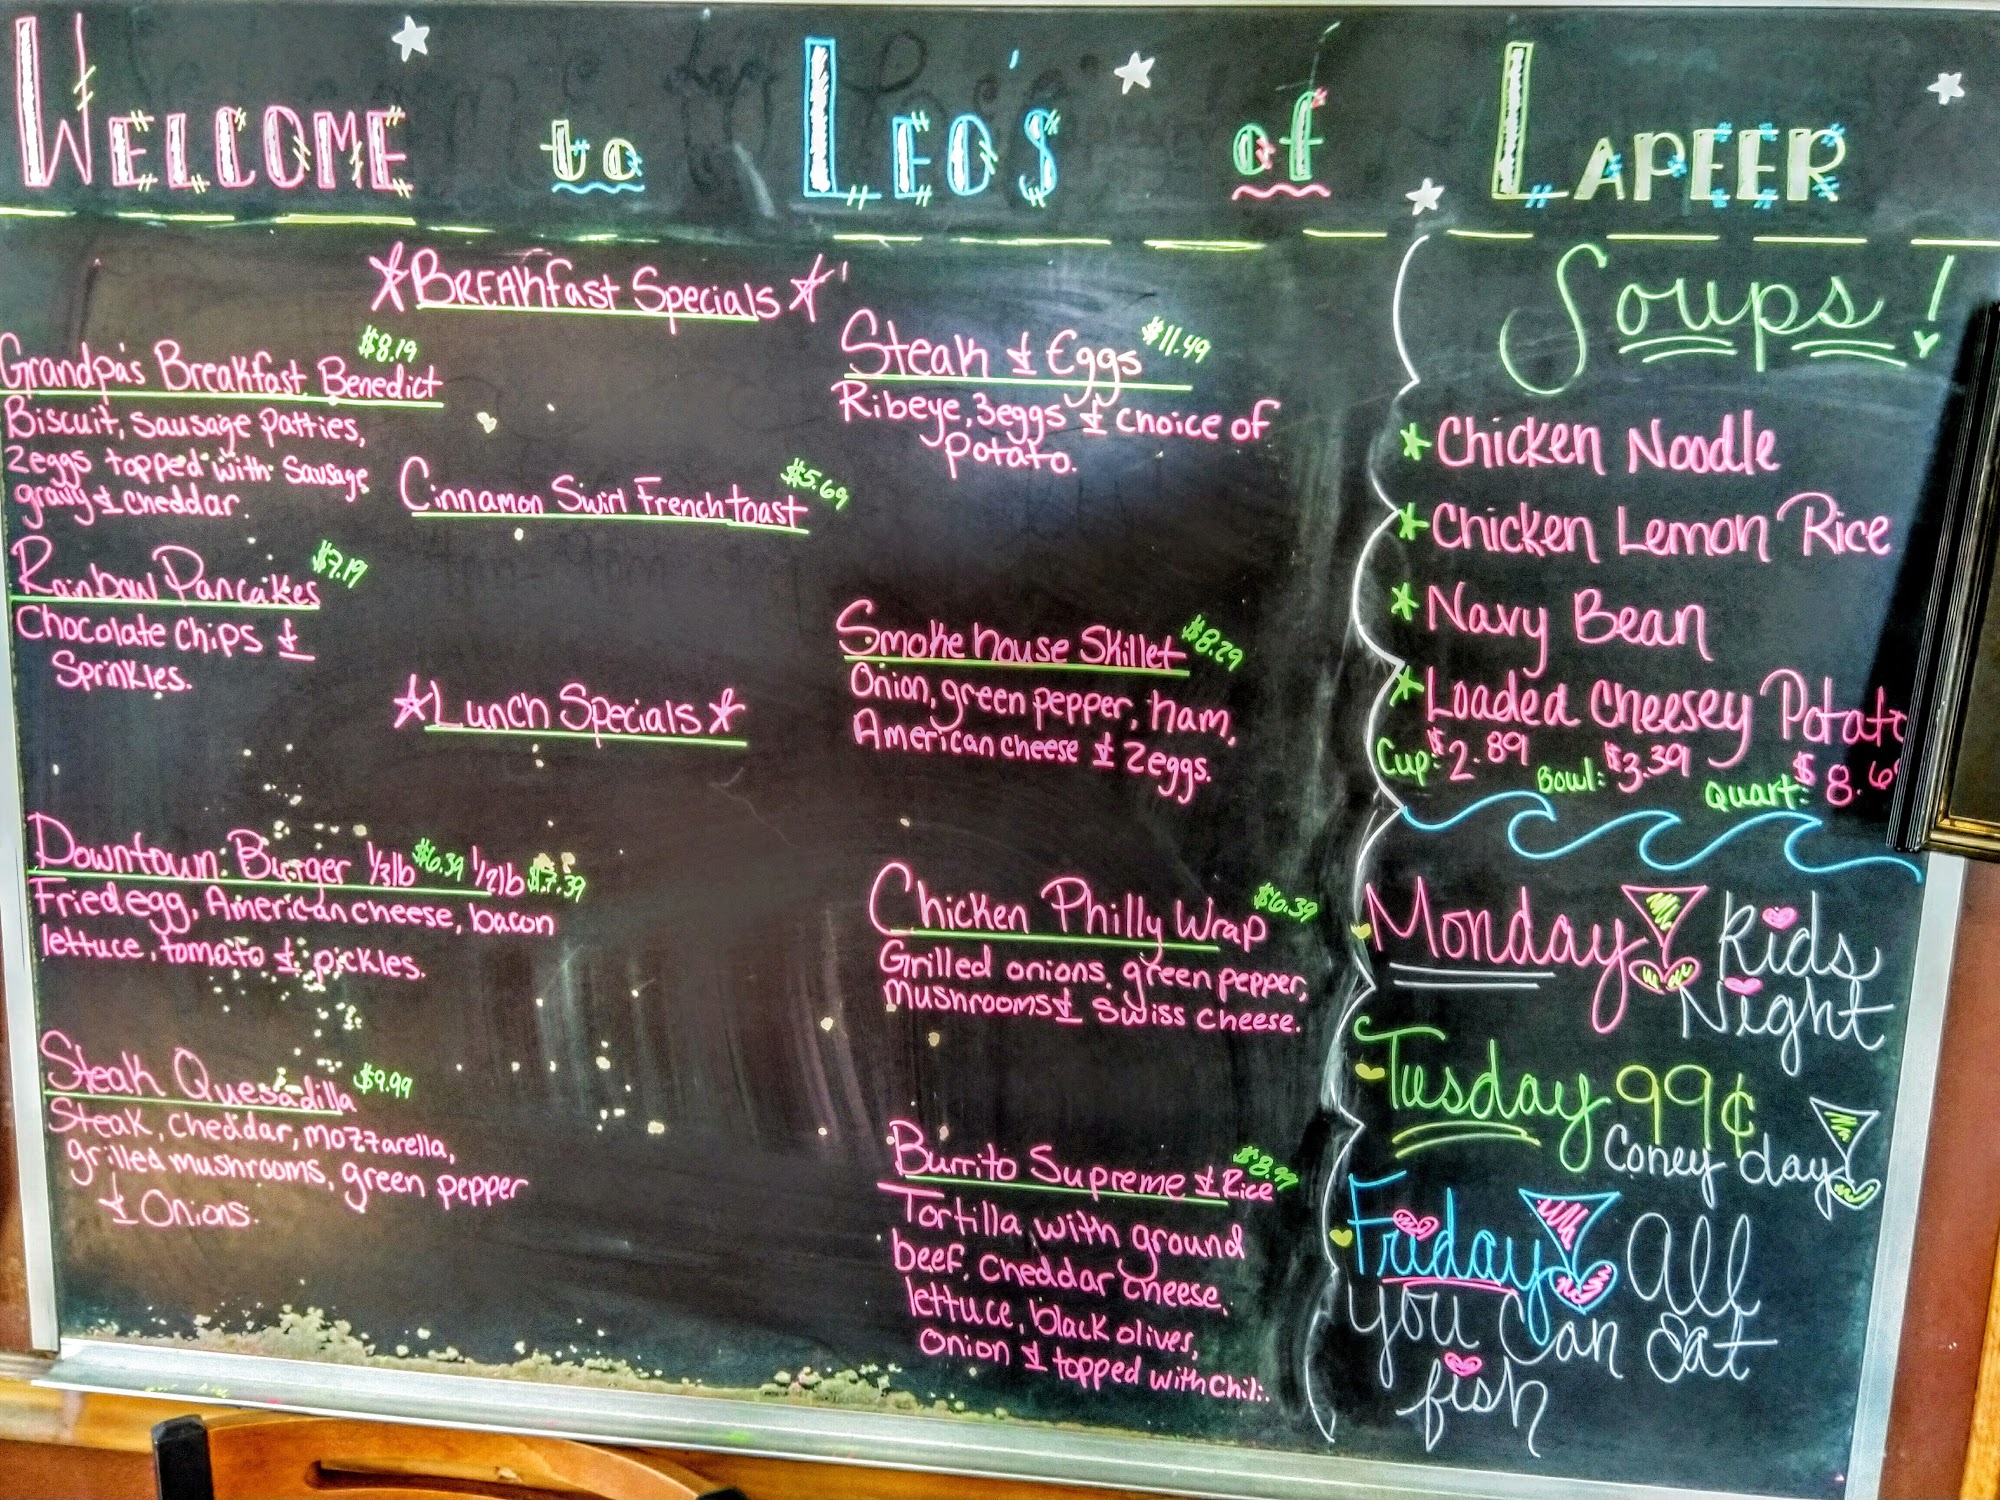 WELCOME to LEO'S of LAPEER
*Breakfast Specials*
Grandpa's Breakfast Benedict $8.19
Biscuit, Sausage Patties,
2eggs topped with Sausage
gravy & Cheddar
Rainbow Pancakes $7.19
Chocolate Chips &
Sprinkles.
Cinnamon Swirl French toast $5.69
Steak & Eggs $11.49
Ribeye, 3eggs & choice of
Potato.
Smoke house Skillet $8.29
Onion, green pepper, ham,
American cheese & 2eggs.
*Lunch Specials*
Downtown Burger 1/3lb $6.39 1/2lb $7.39
Fried egg, American cheese, bacon
lettuce, tomato & pickles.
Steak Quesadilla $9.99
Steak, Cheddar, mozzarella,
grilled mushrooms, green pepper
& Onions.
Chicken Philly Wrap $6.39
Grilled onions, green pepper,
mushrooms & Swiss cheese.
Burrito Supreme & Rice $8.99
Tortilla with ground
beef, Cheddar cheese,
lettuce, black olives,
Onion & topped with chili.
Soups!
Chicken Noodle
Chicken Lemon Rice
Navy Bean
Loaded Cheesey Potato
Cup: $2.89 Bowl: $3.39 Quart: $8.6
Monday Kids
Night
Tuesday 99¢
Coney day
Friday All
you Can Eat
fish